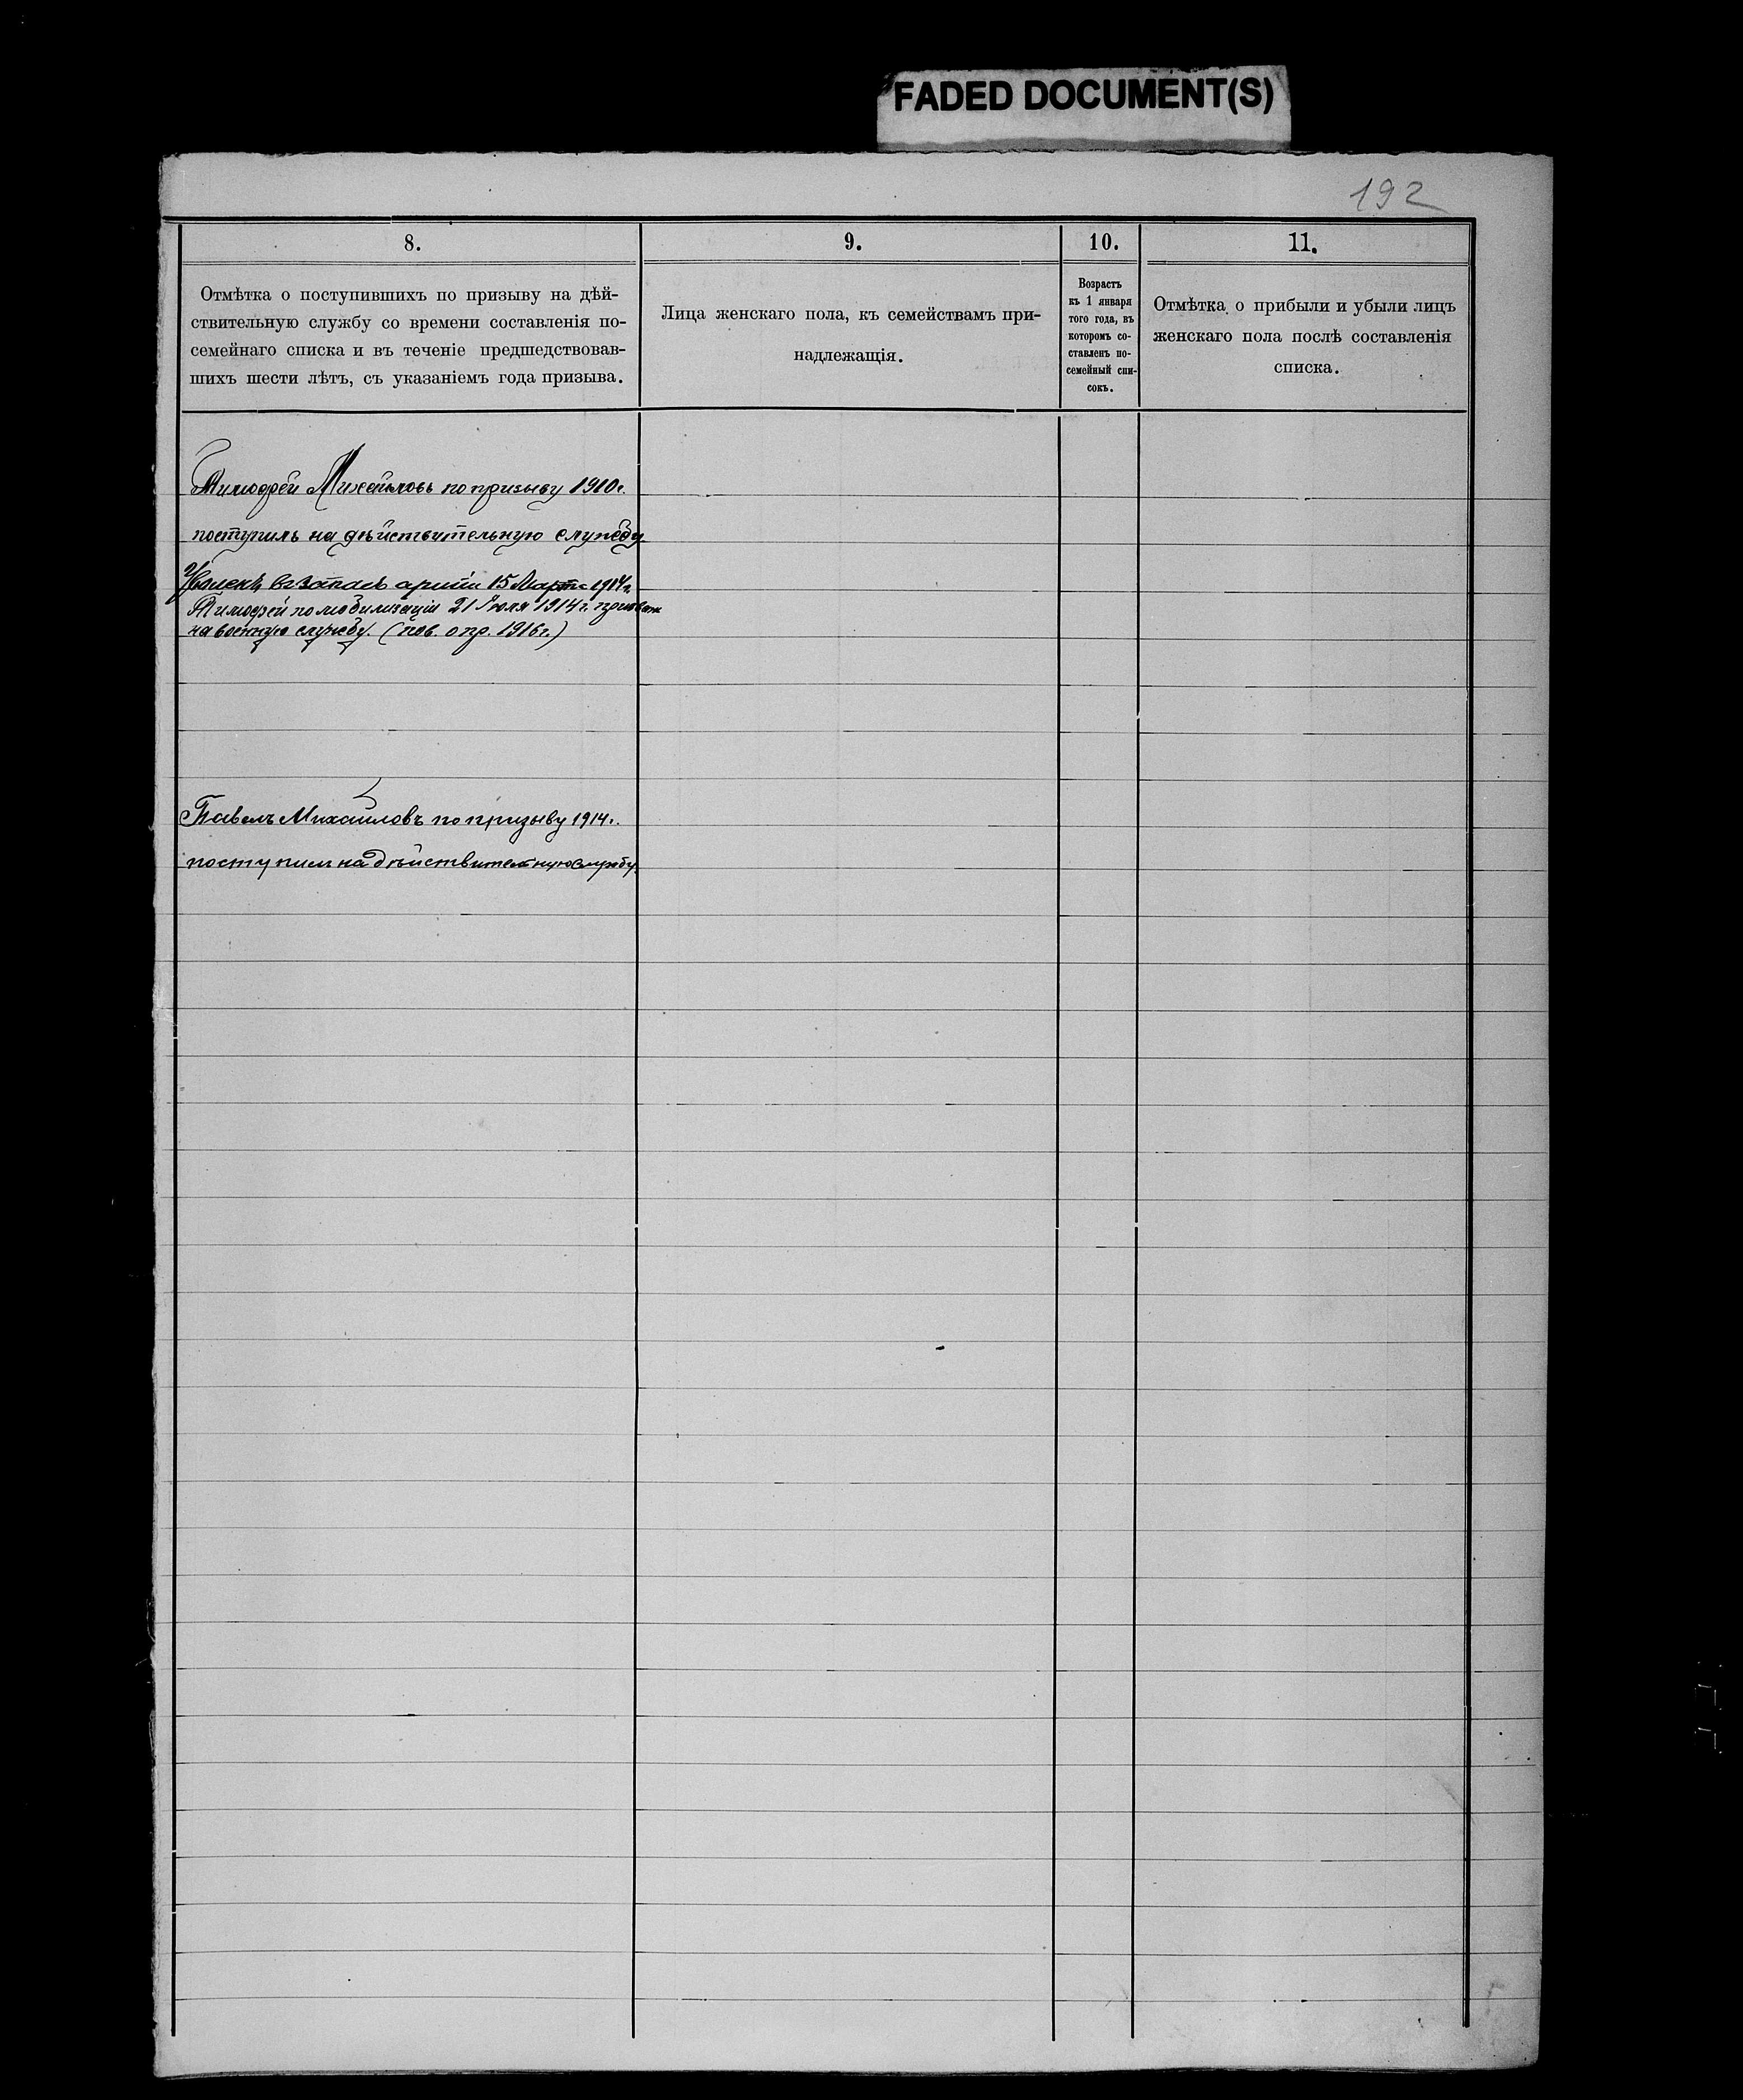 FADED DOCUMENT(S)
192
8.
Отмѣтка о поступившихъ по призыву на дѣй-
ствительную службу со времени составленія по-
семейнаго списка и въ теченіе предшедствовав-
шихъ шести лѣтъ, съ указаніемъ года призыва.
9.
Лица женскаго пола, къ семействамъ при-
надлежащія.
10.
Возрастъ
къ 1 января
того года, въ
которомъ со-
ставленъ по-
семейный спи-
сокъ.
11.
Отмѣтка о прибыли и убыли лицъ
женскаго пола послѣ составленія
списка.
Тимофей Михайловъ по призыву 1910г.
поступилъ на дѣйствительную службу
Уволенъ въ запасъ арміи 15 Марта 1914г.
Тимофей по мобилизаціи 21 Іюля 1914 г. призван
на военную службу. (пов. о пр. 1916г.)
Павелъ Михайловъ по призыву 1914г.
поступилъ на дѣйствительную службу.